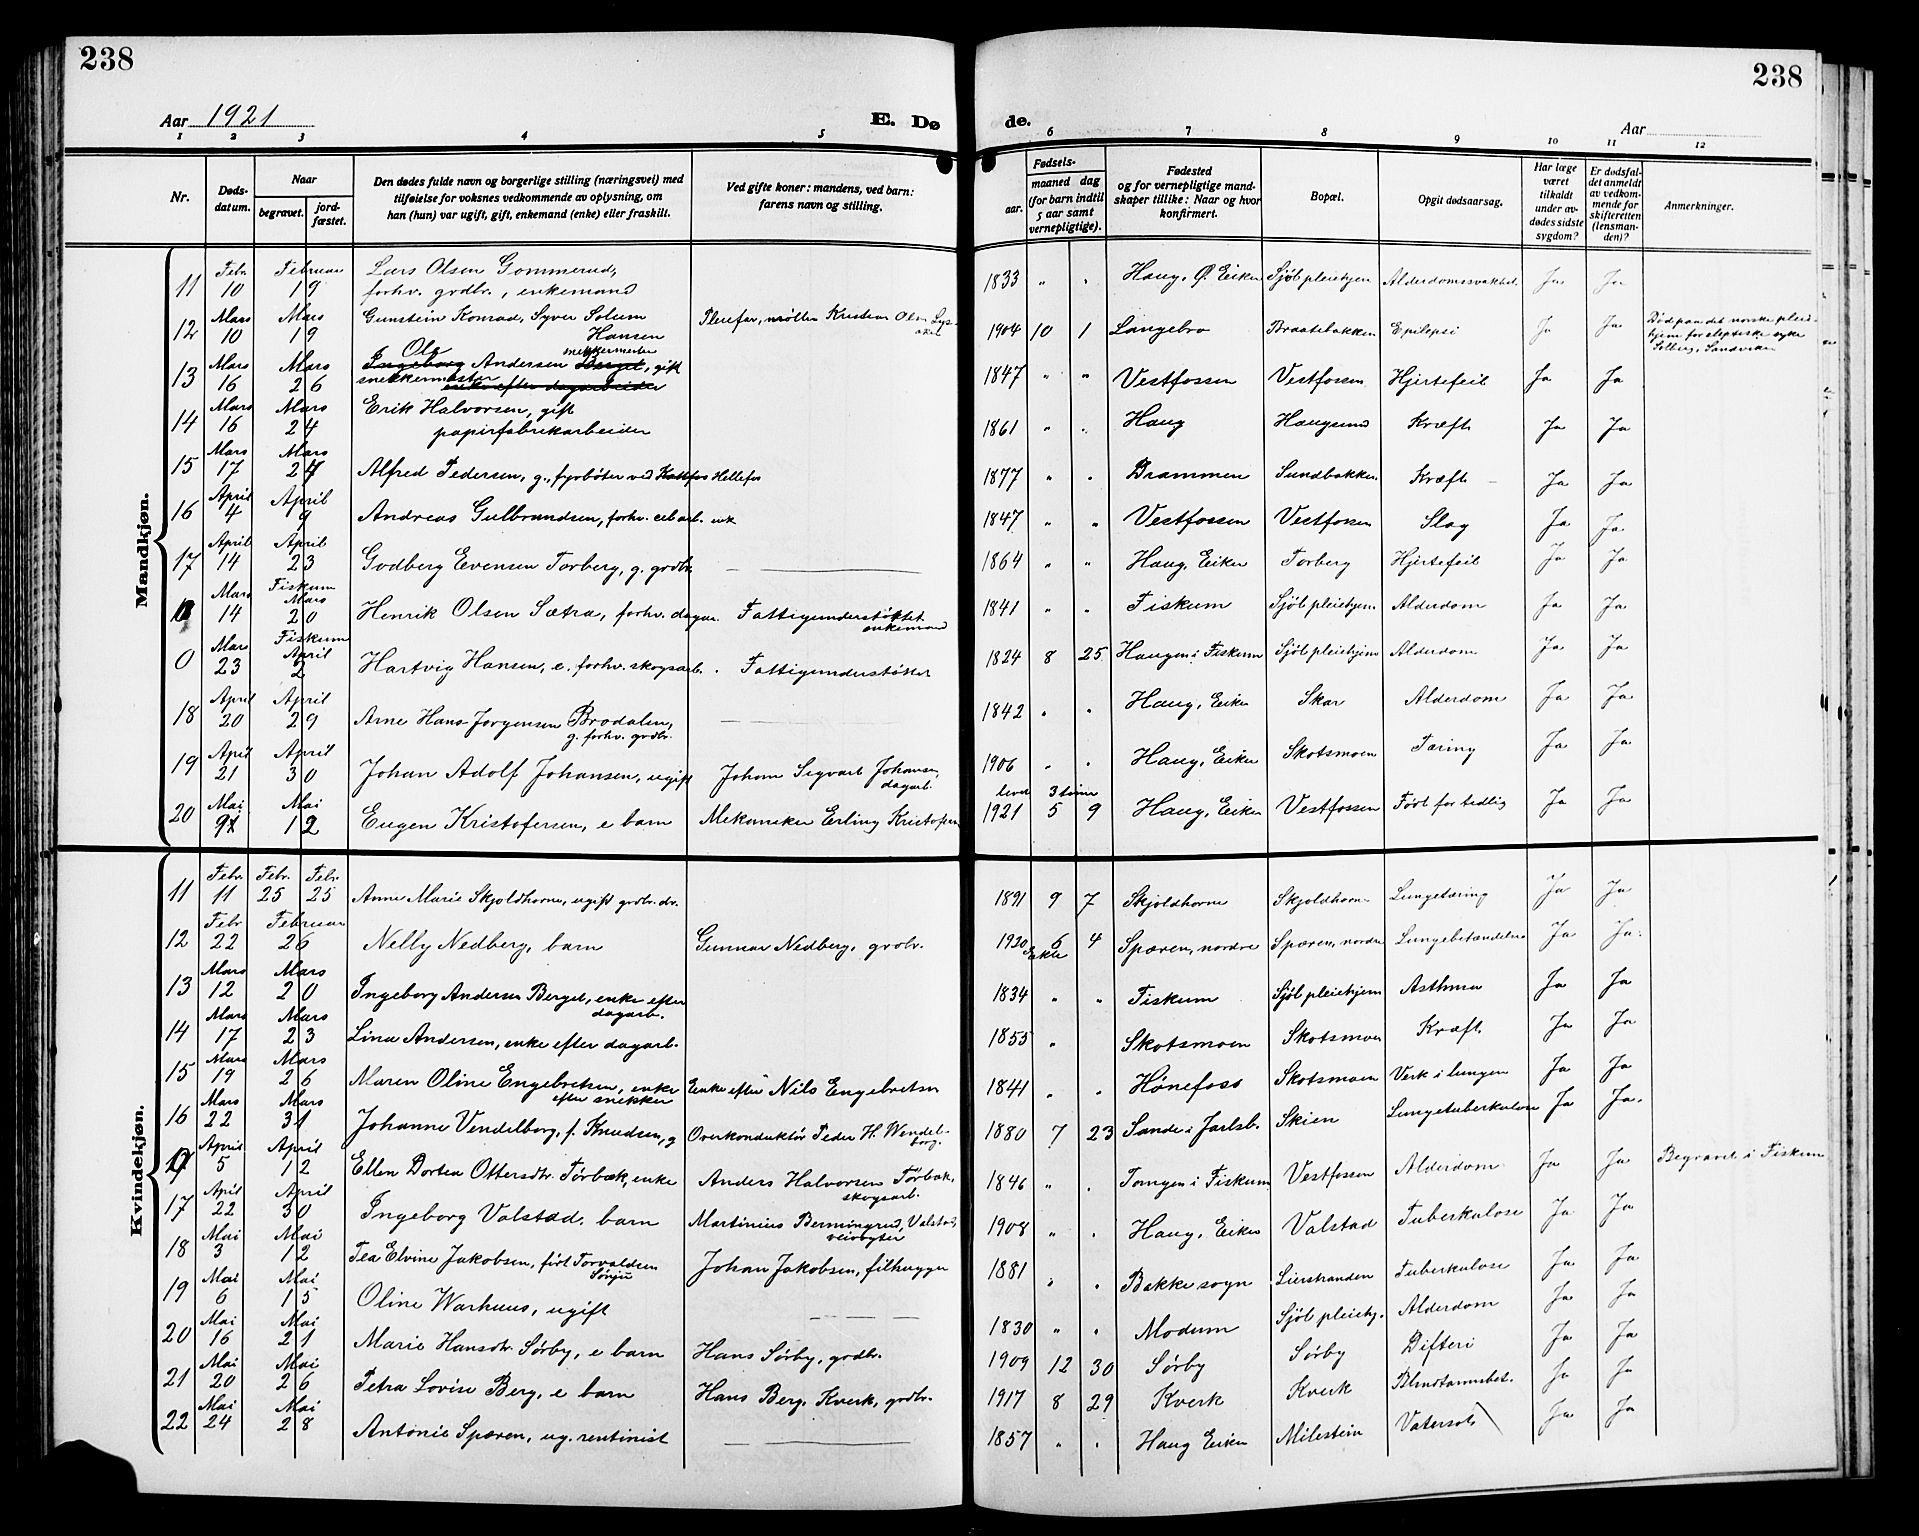 238
238
Aar 1921
E. Dø
de.
Aar
1 2 3 4 5 6 7 8 9 10 11 12
Nr. | Døds-datum. | Naar begravet. | jord-fæstet. | Den dødes fulde navn og borgerlige stilling (næringsvei) med tilføielse for voksnes vedkommende av oplysning, om han (hun) var ugift, gift, enkemand (enke) eller fraskilt. | Ved gifte koner: mandens, ved barn: farens navn og stilling. | Fødsels- aar. | maaned | dag (for barn indtil 5 aar samt vernepligtige). | Fødested og for vernepligtige mandskaper tillike: Naar og hvor konfirmert. | Bopæl. | Opgit dødsaarsag. | Har læge været tilkaldt under avdødes sidste sygdom? | Er dødsfaldet anmeldt av vedkommende for skifteretten (lensmanden)? | Anmerkninger.
Mandkjøn.
11 | Febr. 10 | Februar 19 | Lars Olsen Gommerud, forhv. grdbr., enkemand | 1833 | " | " | Haug, Ø. Eiker | Sjøl pleiehjem | Alderdomssvakhet | Ja | Ja
12 | Mars 10 | Mars 19 | Gunstein Konrad, Syver Solum Hansen | Pleiefar, møller Kristian Olsen | 1904 | 10 | 1 | Langebro | Braatebakken | Epilepsi | Ja | Ja | Død paa det norske pleiehjem for eleptiske syke Solberg, Sandviken
13 | Mars 16 | Mars 26 | Ingeborg Ole Andersen Berget, snekkermester, gift snekkermester enke efter dagarbeider | 1847 | " | " | Vestfossen | Vestfossen | Hjertefeil | Ja | Ja
14 | Mars 16 | Mars 24 | Erik Halvorsen, gift papirfabrikarbeider | 1861 | " | " | Haug | Haugsund | Kræft | Ja | Ja
15 | Mars 17 | Mars 24 | Alfred Pedersen, g., fyrbøter ved Hellefos | 1877 | " | " | Drammen | Sundbakken | Kræft | Ja | Ja
16 | April 4 | April 9 | Andreas Gulbrandsen, forhv. arb. enk | 1847 | " | " | Vestfossen | Vestfossen | Slag | Ja | Ja
17 | April 14 | April 23 | Godberg Evensen Torberg, g. grdbr. | 1864 | " | " | Haug, Eiker | Torberg | Hjertefeil | Ja | Ja
0 | Mars 14 | Fiskum Mars 20 | Henrik Olsen Sætra, forhv. dagar. | Fattigunderstøttet enkemand | 1841 | " | " | Fiskum | Sjøl pleiehjem | Alderdom | Ja | Ja
0 | Mars 23 | Fiskum April 2 | Hartvig Hansen, e. forhv. skogsarb. | Fattigunderstøttet | 1824 | 8 | 25 | Haugen i Fiskum | Sjøl pleiehjem | Alderdom | Ja | Ja
18 | April 20 | April 29 | Arne Hans Jørgensen Brodalen, g. forhv. grdbr. | 1842 | " | " | Haug, Eiker | Skar | Alderdom | Ja | Ja
19 | April 21 | April 30 | Johan Adolf Johansen, ugift | Johan Sigvart Johansen, dagarb. | 1906 | " | " | Haug, Eiker | Skotsmoen | Tæring | Ja | Ja
20 | Mai 9 | Mai 12 | Eugen Kristofersen, e barn | Mekaniker Erling Kristofersen | levet 3 timer 1921 | 5 | 9 | Haug, Eiker | Vestfossen | Født for tidlig | Ja | Ja
Kvindekjøn.
11 | Febr. 11 | Febr. 25 | Febr. 25 | Anne Marie Skjoldhorne, ugift grdbr. dr. | 1891 | 9 | 7 | Skjoldhorne | Skjoldhorne | Lungetæring | Ja | Ja
12 | Febr. 22 | Februar 26 | Nelly Nedberg, barn | Gunnar Nedberg, grdbr. | 1920 | 6 | 4 | Spæren, nordre | Spæren, nordre | Lungebetændelse | Ja | Ja
13 | Mars 12 | Mars 20 | Ingeborg Andersen Berget, enke efter dagarb. | 1834 | " | " | Fiskum | Sjøl pleiehjem | Asthma | Ja | Ja
14 | Mars 17 | Mars 23 | Lina Andersen, enke efter dagarb. | 1855 | " | Skotsmoen | Skotsmoen | Kræft | Ja | Ja
15 | Mars 19 | Mars 26 | Maren Oline Engebretsen, enke efter snekker | Enke efter Nils Engebretsen | 1841 | " | " | Hønefoss | Skotsmoen | Verk i lungen | Ja | Ja
16 | Mars 22 | Mars 31 | Johanne Vendelborg, f. Knudsen, g | Overkonduktør Peder H. Wendelborg. | 1880 | 7 | 23 | Sande i Jarlsb. | Skien | Lungetuberkulose | Ja | Ja
0 | April 5 | April 12 | Ellen Dortea Ottersdtr. Tørbæk, enke | Anders Halvorsen Tørbæk, skogsarb. | 1846 | " | " | Tomgen i Fiskum | Vestfossen | Alderdom | Ja | Ja | Begravet i Fiskum
17 | April 22 | April 30 | Ingeborg Valstad, barn | Martinius Bermingrud, Valstad, veivogter | 1908 | " | " | Haug, Eiker | Valstad | Tuberkulose | Ja | Ja
18 | Mai 3 | Mai 12 | Tea Elvine Jakobsen, født Torvaldsen Sønju | Johan Jakobsen, filhugger | 1881 | " | " | Bakke sogn | Lierstranden | Tuberkulose | Ja | Ja
19 | Mai 6 | Mai 15 | Oline Warhuus, ugift | 1830 | " | " | Modum | Sjøl pleiehj. | Alderdom | Ja | Ja
20 | Mai 16 | Mai 21 | Marie Hansdtr. Sørby, e barn | Hans Sørby, grdbr. | 1909 | 12 | 30 | Sørby | Sørby | Difteri | Ja | Ja
21 | Mai 20 | Mai 26 | Petra Lovise Berg, e barn | Hans Berg, Kverk, grdbr. | 1917 | 8 | 29 | Kverk | Kverk | Blindtarmsbet. | Ja | Ja
22 | Mai 24 | Mai 28 | Antonie Spæren, ug. rentinist | 1857 | " | " | Haug Eiker | Milestein | Vatersot | Ja | Ja